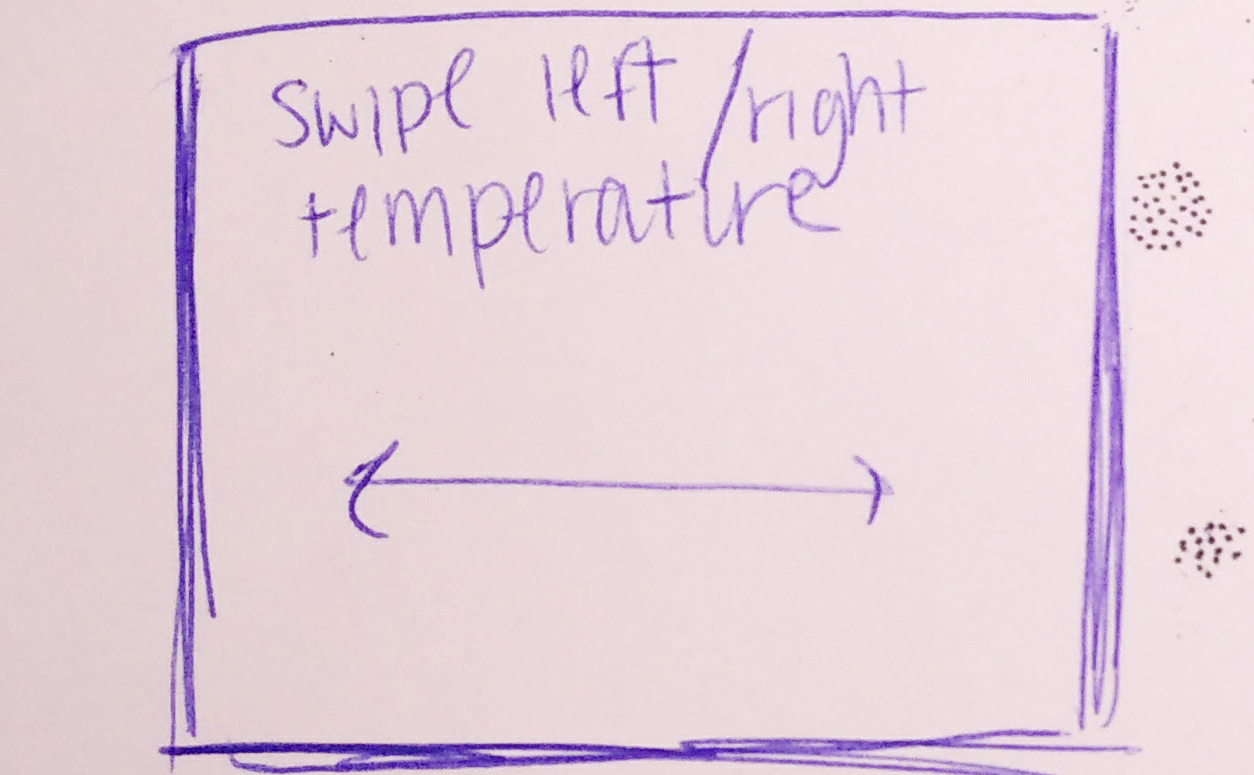 Swipe left/right
temperature